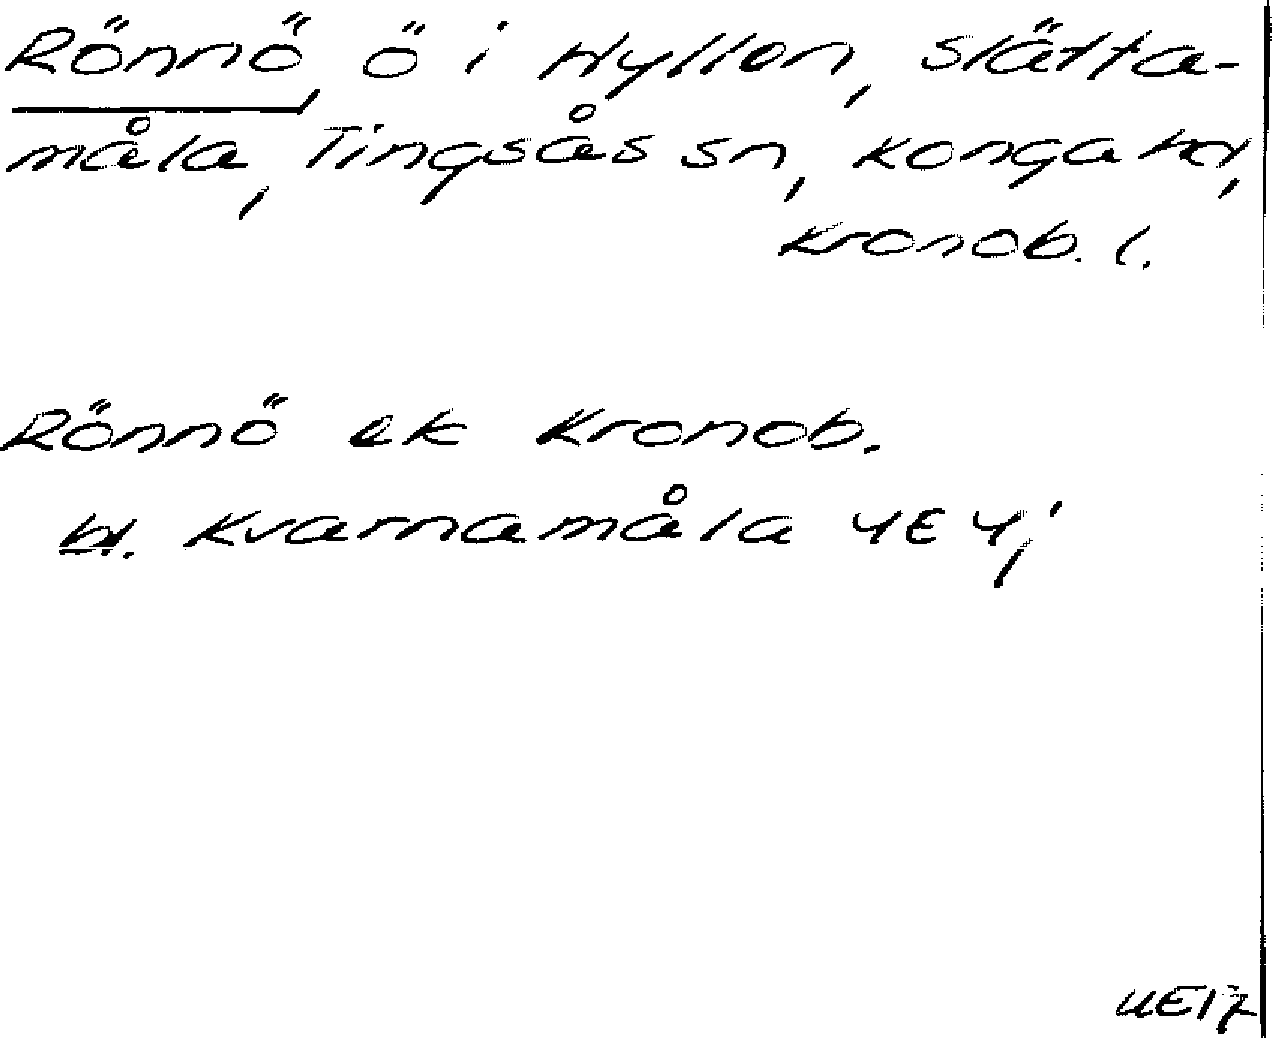 Rönnö, ö i Hyllen, Slätta-
måla, Tingsås sn, Konga hd,
Kronob. l.
Rönnö ek Kronob.
bl. Kvarnamåla 4E 4i